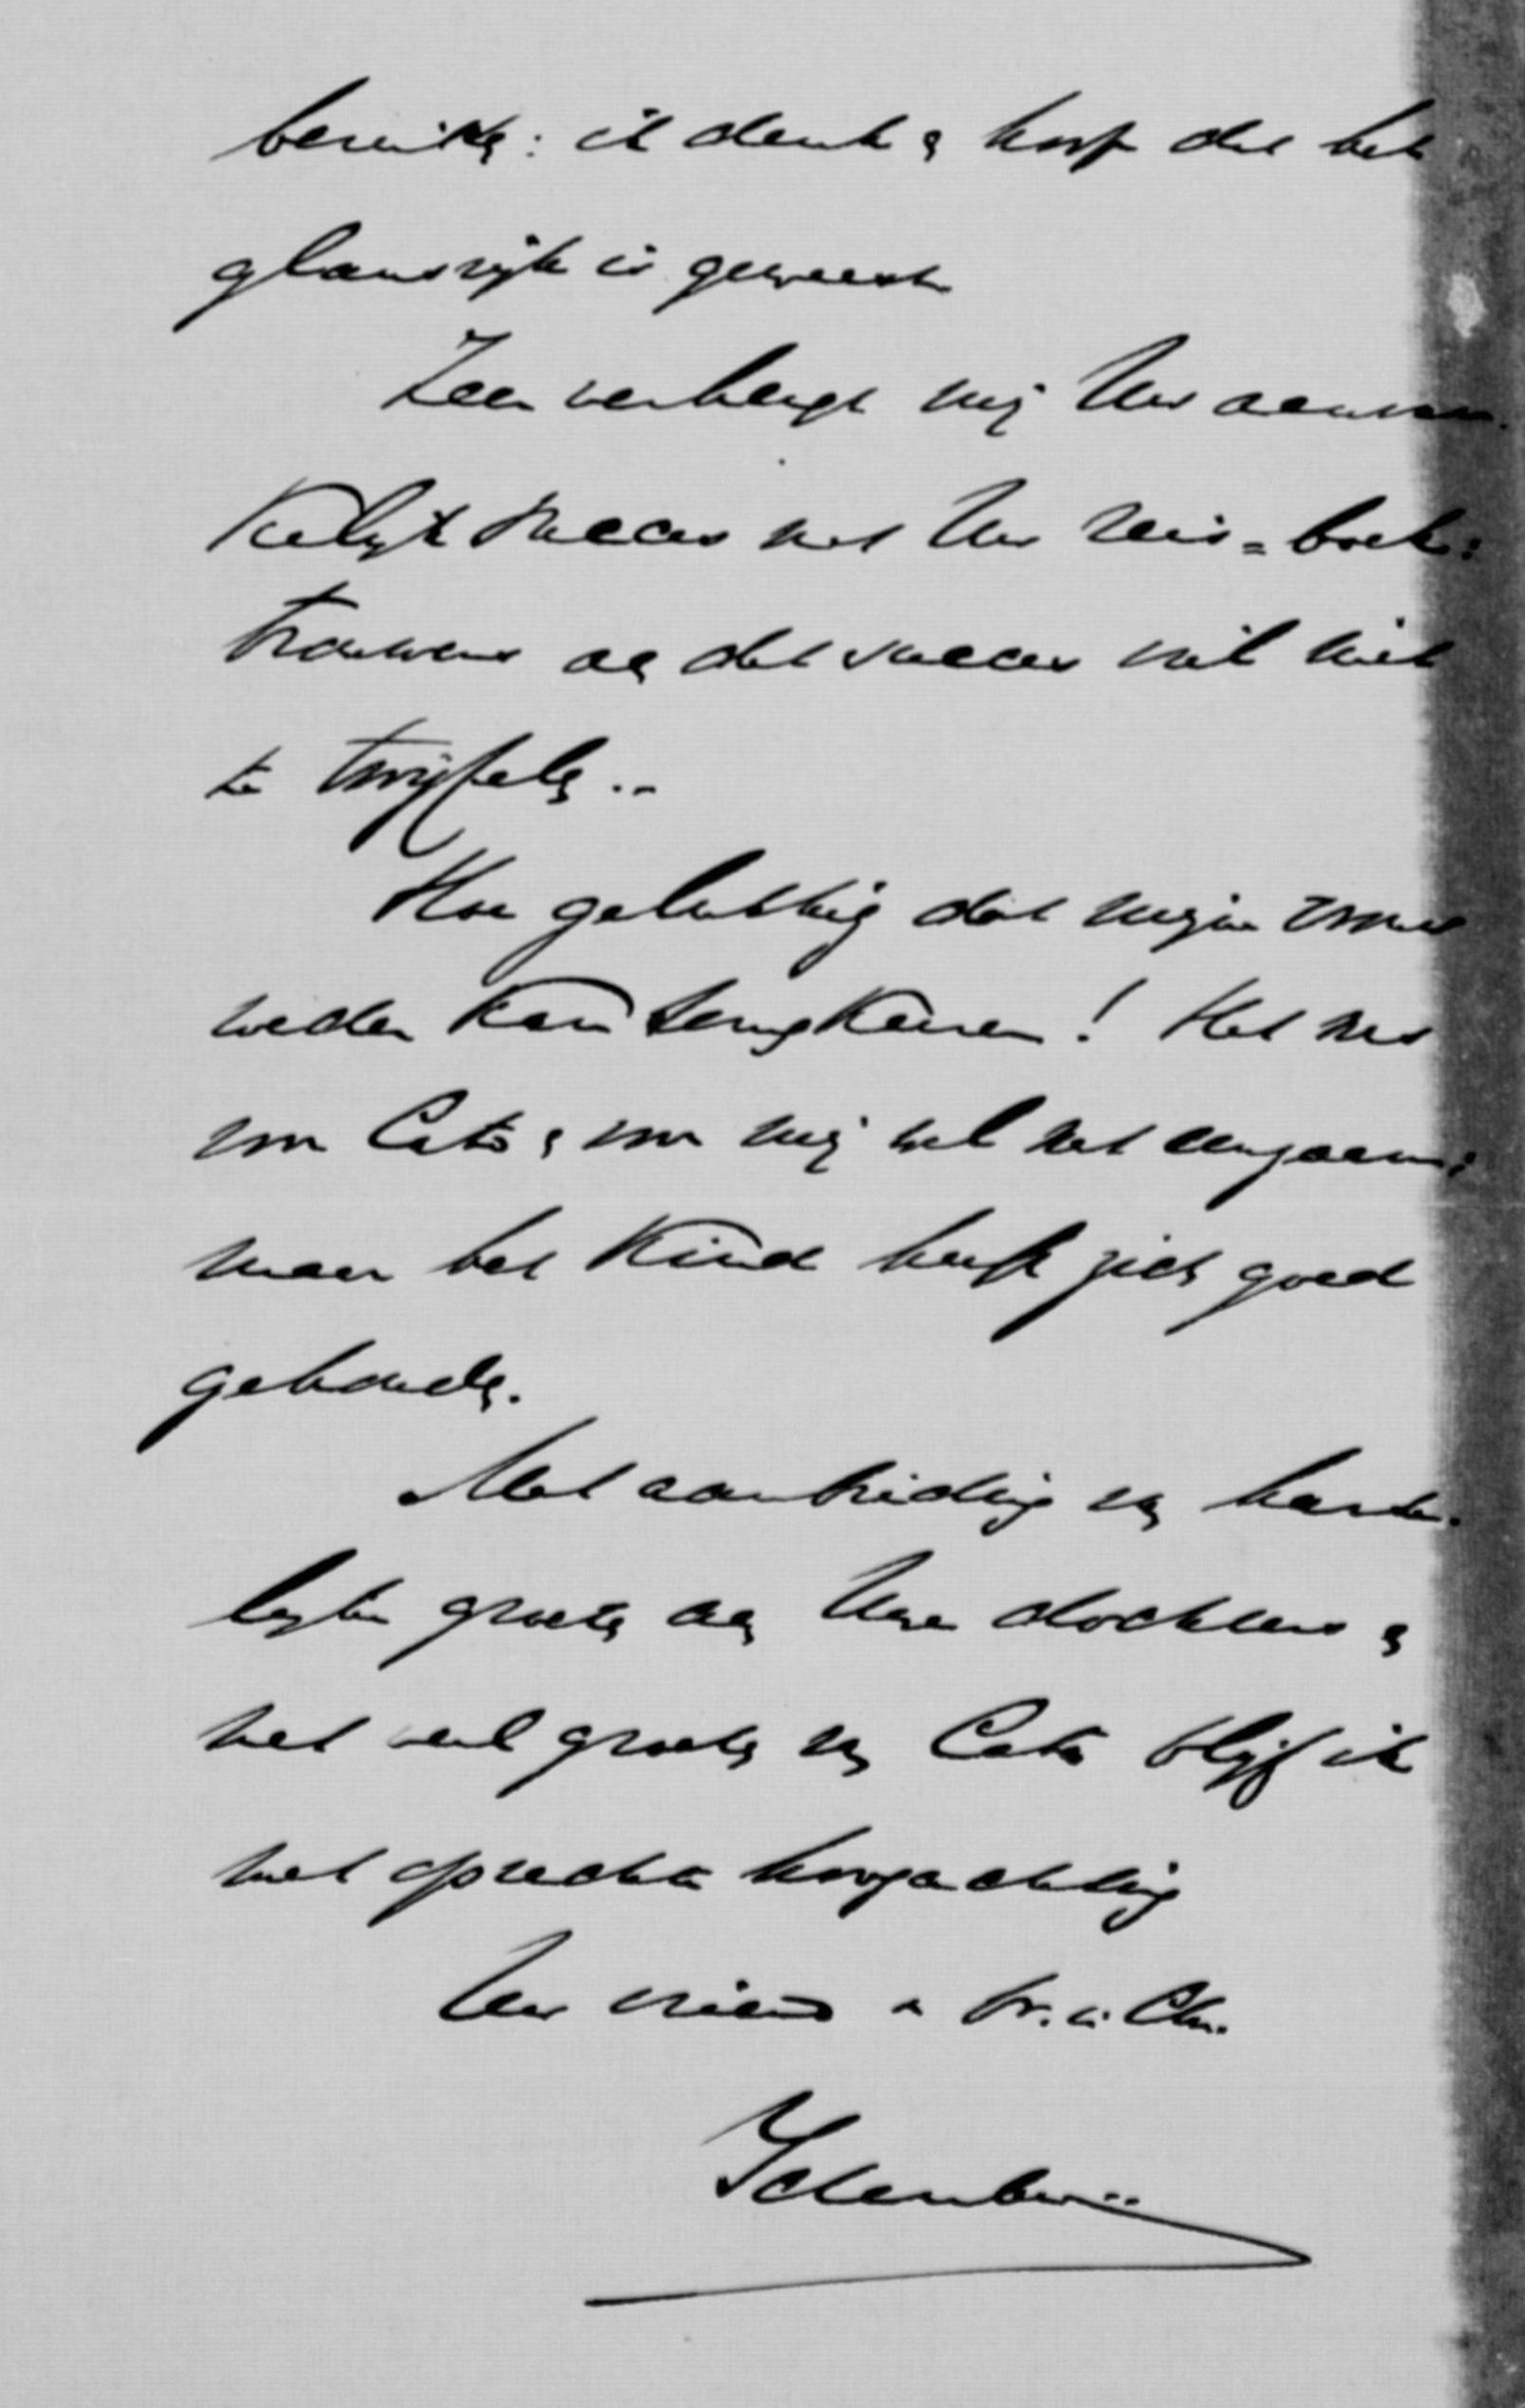 bereikte: ik denk & hoop dat het
glansrijk is geweest
Zeer verheugt mij Uw aanvan-
kelijk succes met Uw reis=boek:
trouwens aan dat succes viel niet
te twijfelen..
Hoe gelukkig dat mijne vrouw
weder kan terugkeeren! Het was
voor Cato & voor mij wel wat eenzaam:
maar het kind heeft zich goed
gehouden.
Met aanbieding van harte-
lijke groeten aan Uwe dochters &
met veel groeten van Cato blijf ik
met oprechte hoogachting
Uw vriend & br. i. Chr.
Idenburg